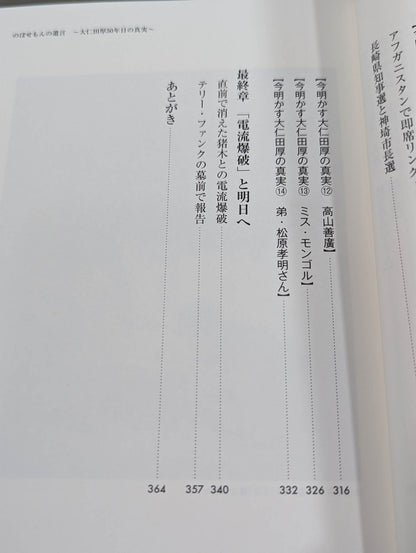 のぼせもんの遺言 ～大仁田厚50年目の真実～
アフガニスタンで即席リング
長崎県知事選と神埼市長選
【今明かす大仁田厚の真実⑫ 高山善廣】 316
【今明かす大仁田厚の真実⑬ ミス・モンゴル】 326
【今明かす大仁田厚の真実⑭ 弟・松原孝明さん】 332
最終章 「電流爆破」と明日へ
直前で消えた猪木との電流爆破 340
テリー・ファンクの墓前で報告 357
あとがき 364